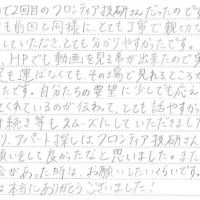 で2回目のフロンティア技研さんだったのです
も前回と同様に、とても丁寧で親切な
していただき、とても分かりやすかったです。
、HPでも動画を見る事が出来たので実
足を運ばなくても、その場で見れるところが
たです。自分たちの要望に少しでも応え
くれているのが伝わって、とても話やすかっ
手続き等もスムーズにしていただきまし
り、アパート探しはフロンティア技研さん
願いそして良かったなと思いました。また
会があった時は、お願いしたいくらいです。
は本当にありがとうございました！